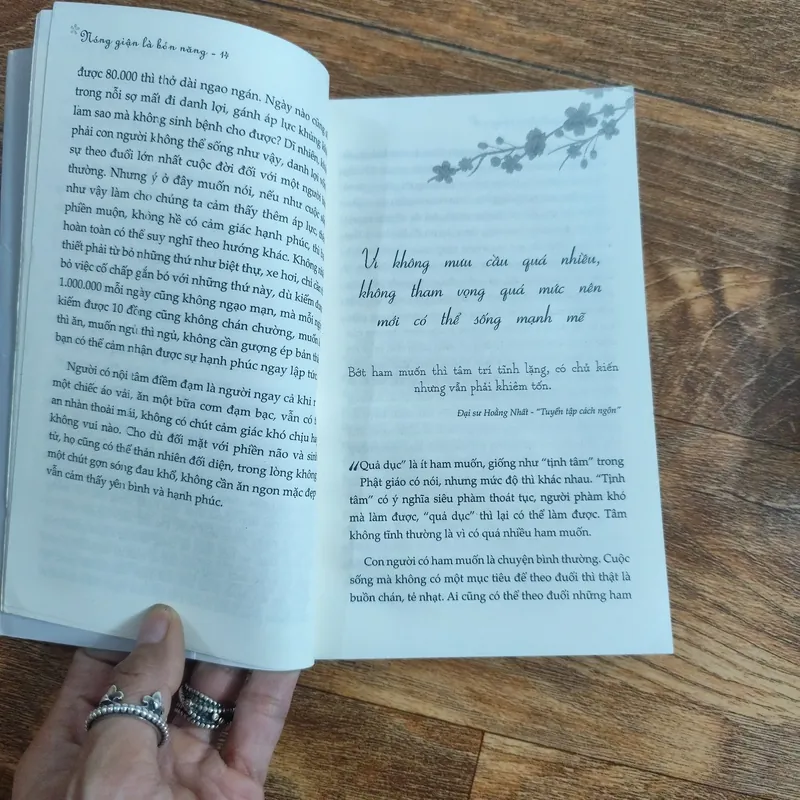 Nóng giận là bản năng - 14
được 80.000 thì thở dài ngao ngán. Ngày nào cũng
trong nỗi sợ mất đi danh lợi, gánh áp lực khủng
làm sao mà không sinh bệnh cho được? Dĩ nhiên,
phải con người không thể sống như vậy, danh lợi
sự theo đuổi lớn nhất cuộc đời đối với một người
thường. Nhưng ý ở đây muốn nói, nếu như cuộc
như vậy làm cho chúng ta cảm thấy thêm áp lực,
phiền muộn, không hề có cảm giác hạnh phúc, thì
hoàn toàn có thể suy nghĩ theo hướng khác. Không
thiết phải từ bỏ những thứ như biệt thự, xe hơi, chỉ cần
bỏ việc cố chấp gắn bó với những thứ này, dù kiếm được
1.000.000 mỗi ngày cũng không ngạo mạn, mà mỗi ngày
kiếm được 10 đồng cũng không chán chường, muốn
thì ăn, muốn ngủ thì ngủ, không cần gượng ép bản thân
bạn có thể cảm nhận được sự hạnh phúc ngay lập tức.
Người có nội tâm điềm đạm là người ngay cả khi
một chiếc áo vải, ăn một bữa cơm đạm bạc, vẫn có
an nhàn thoải mái, không có chút cảm giác khó chịu
không vui nào. Cho dù đối mặt với phiền não và sinh
tử, họ cũng có thể thản nhiên đối diện, trong lòng không
một chút gợn sóng đau khổ, không cần ăn ngon mặc đẹp
vẫn cảm thấy yên bình và hạnh phúc.
Vì không mưu cầu quá nhiều,
không tham vọng quá mức nên
mới có thể sống mạnh mẽ
Bớt ham muốn thì tâm trí tĩnh lặng, có chủ kiến
nhưng vẫn phải khiêm tốn.
Đại sư Hoằng Nhất - "Tuyển tập cách ngôn"
"Quả dục" là ít ham muốn, giống như "tịnh tâm" trong
Phật giáo có nói, nhưng mức độ thì khác nhau. "Tịnh
tâm" có ý nghĩa siêu phàm thoát tục, người phàm khó
mà làm được, "quả dục" thì lại có thể làm được. Tâm
không tĩnh thường là vì có quá nhiều ham muốn.
Con người có ham muốn là chuyện bình thường. Cuộc
sống mà không có một mục tiêu để theo đuổi thì thật là
buồn chán, tẻ nhạt. Ai cũng có thể theo đuổi những ham